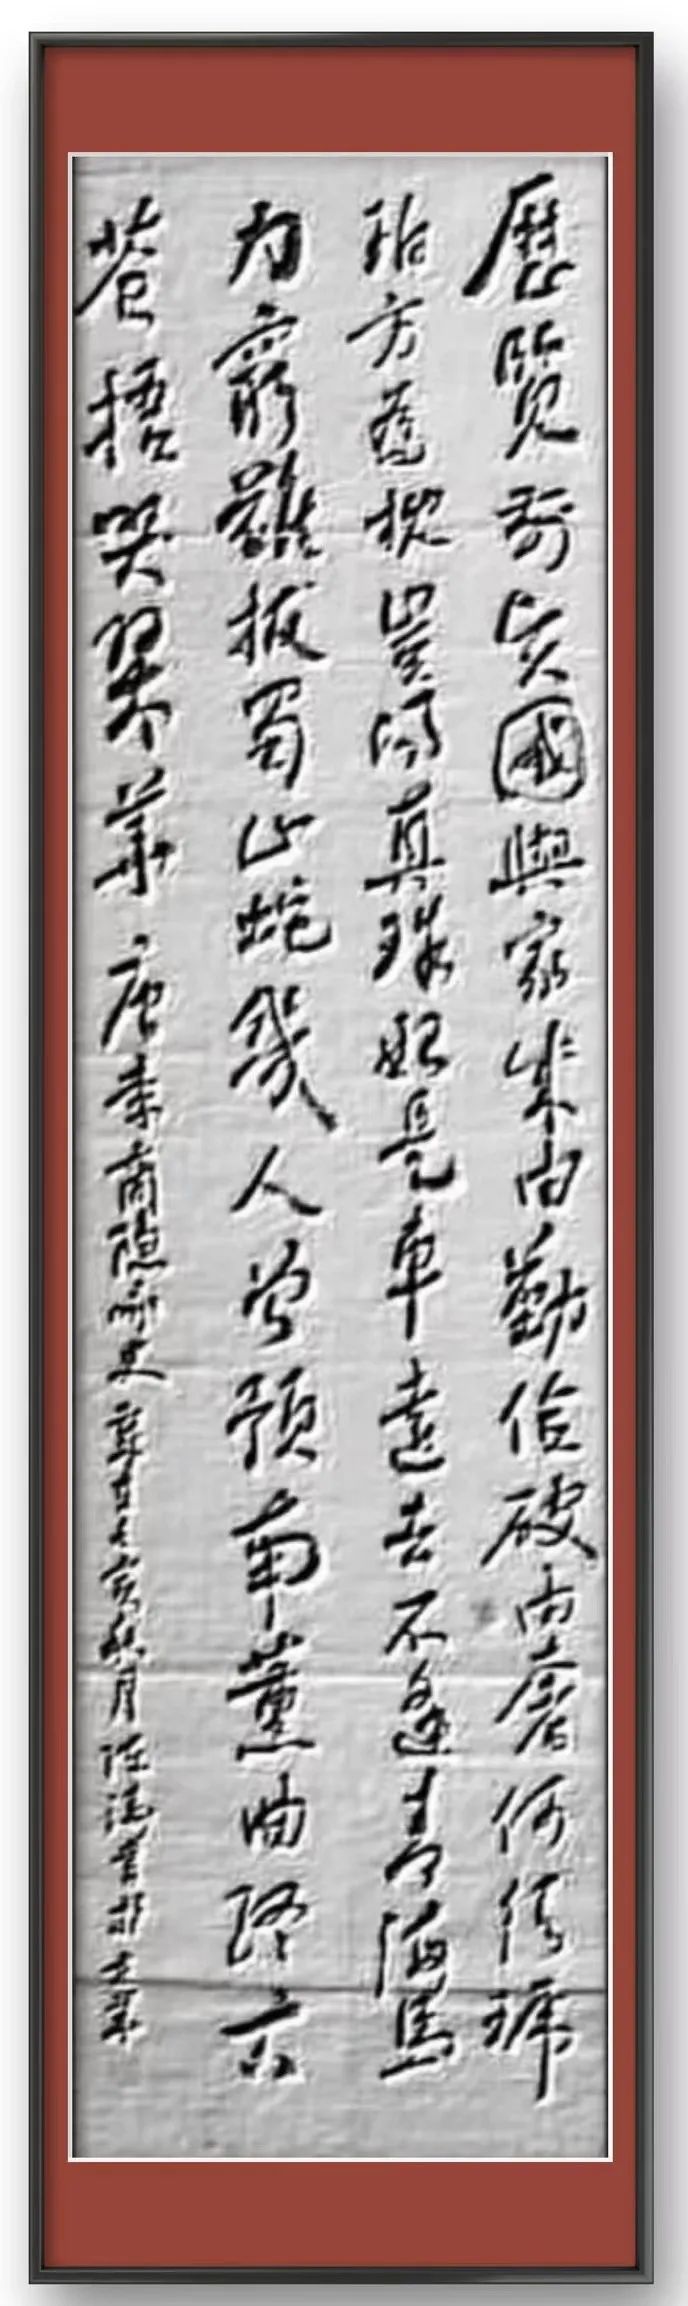 歷覽前賢國與家成由勤儉破由奢何須琥
珀方為枕豈得真珠始是車遠去不逢青海馬
力窮難拔蜀山蛇幾人曾預南薰曲終古
蒼梧哭翠華 唐李商隱詠史 亥秋月